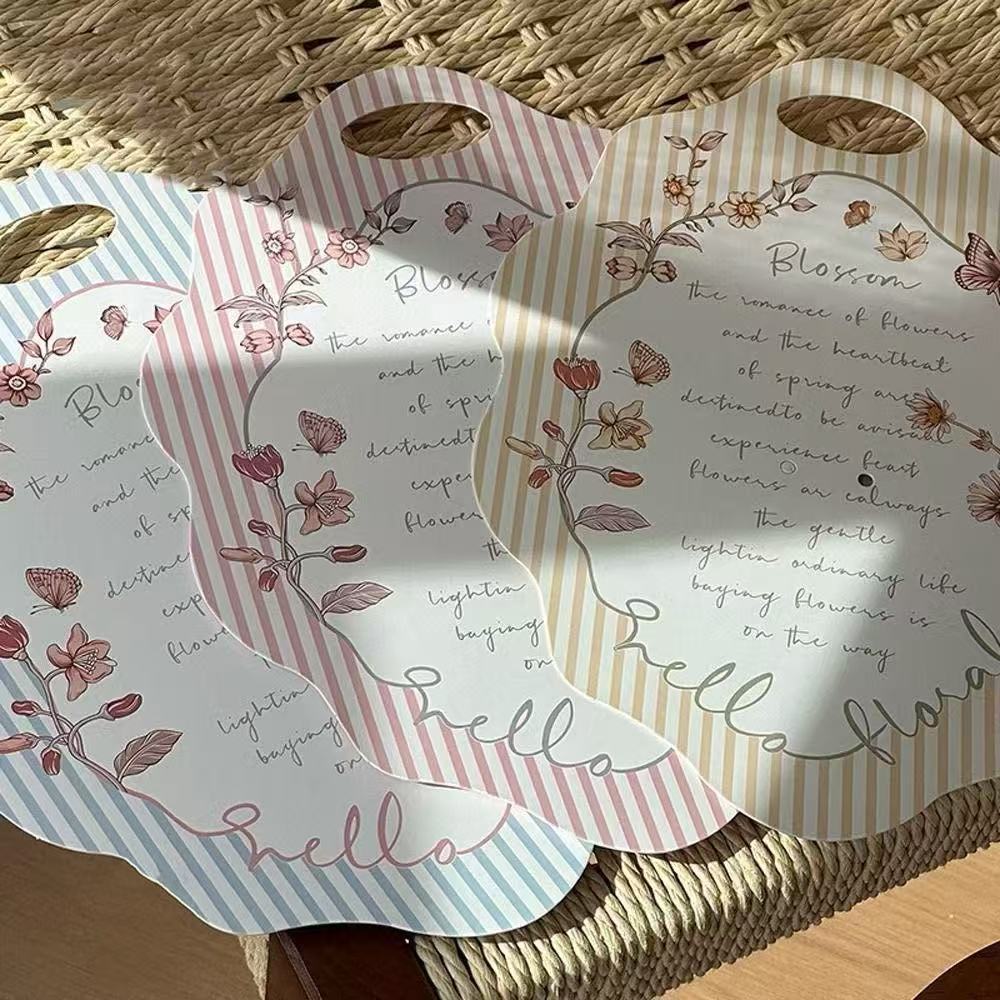 Blo
the romance
and the
of sp
destine
exp
flow
lightin
baying
on
hello
Bloss
the romance
and the h
of spri
destinedt
expe
flower
th
lightin
baying
on
hello
Blossom
the romance of flowers
and the heartbeat
of spring are
destinedto be avisual
experience feast
flowers ar ealways
the gentle
lightin ordinary life
baying flowers is
on the way
hello floral